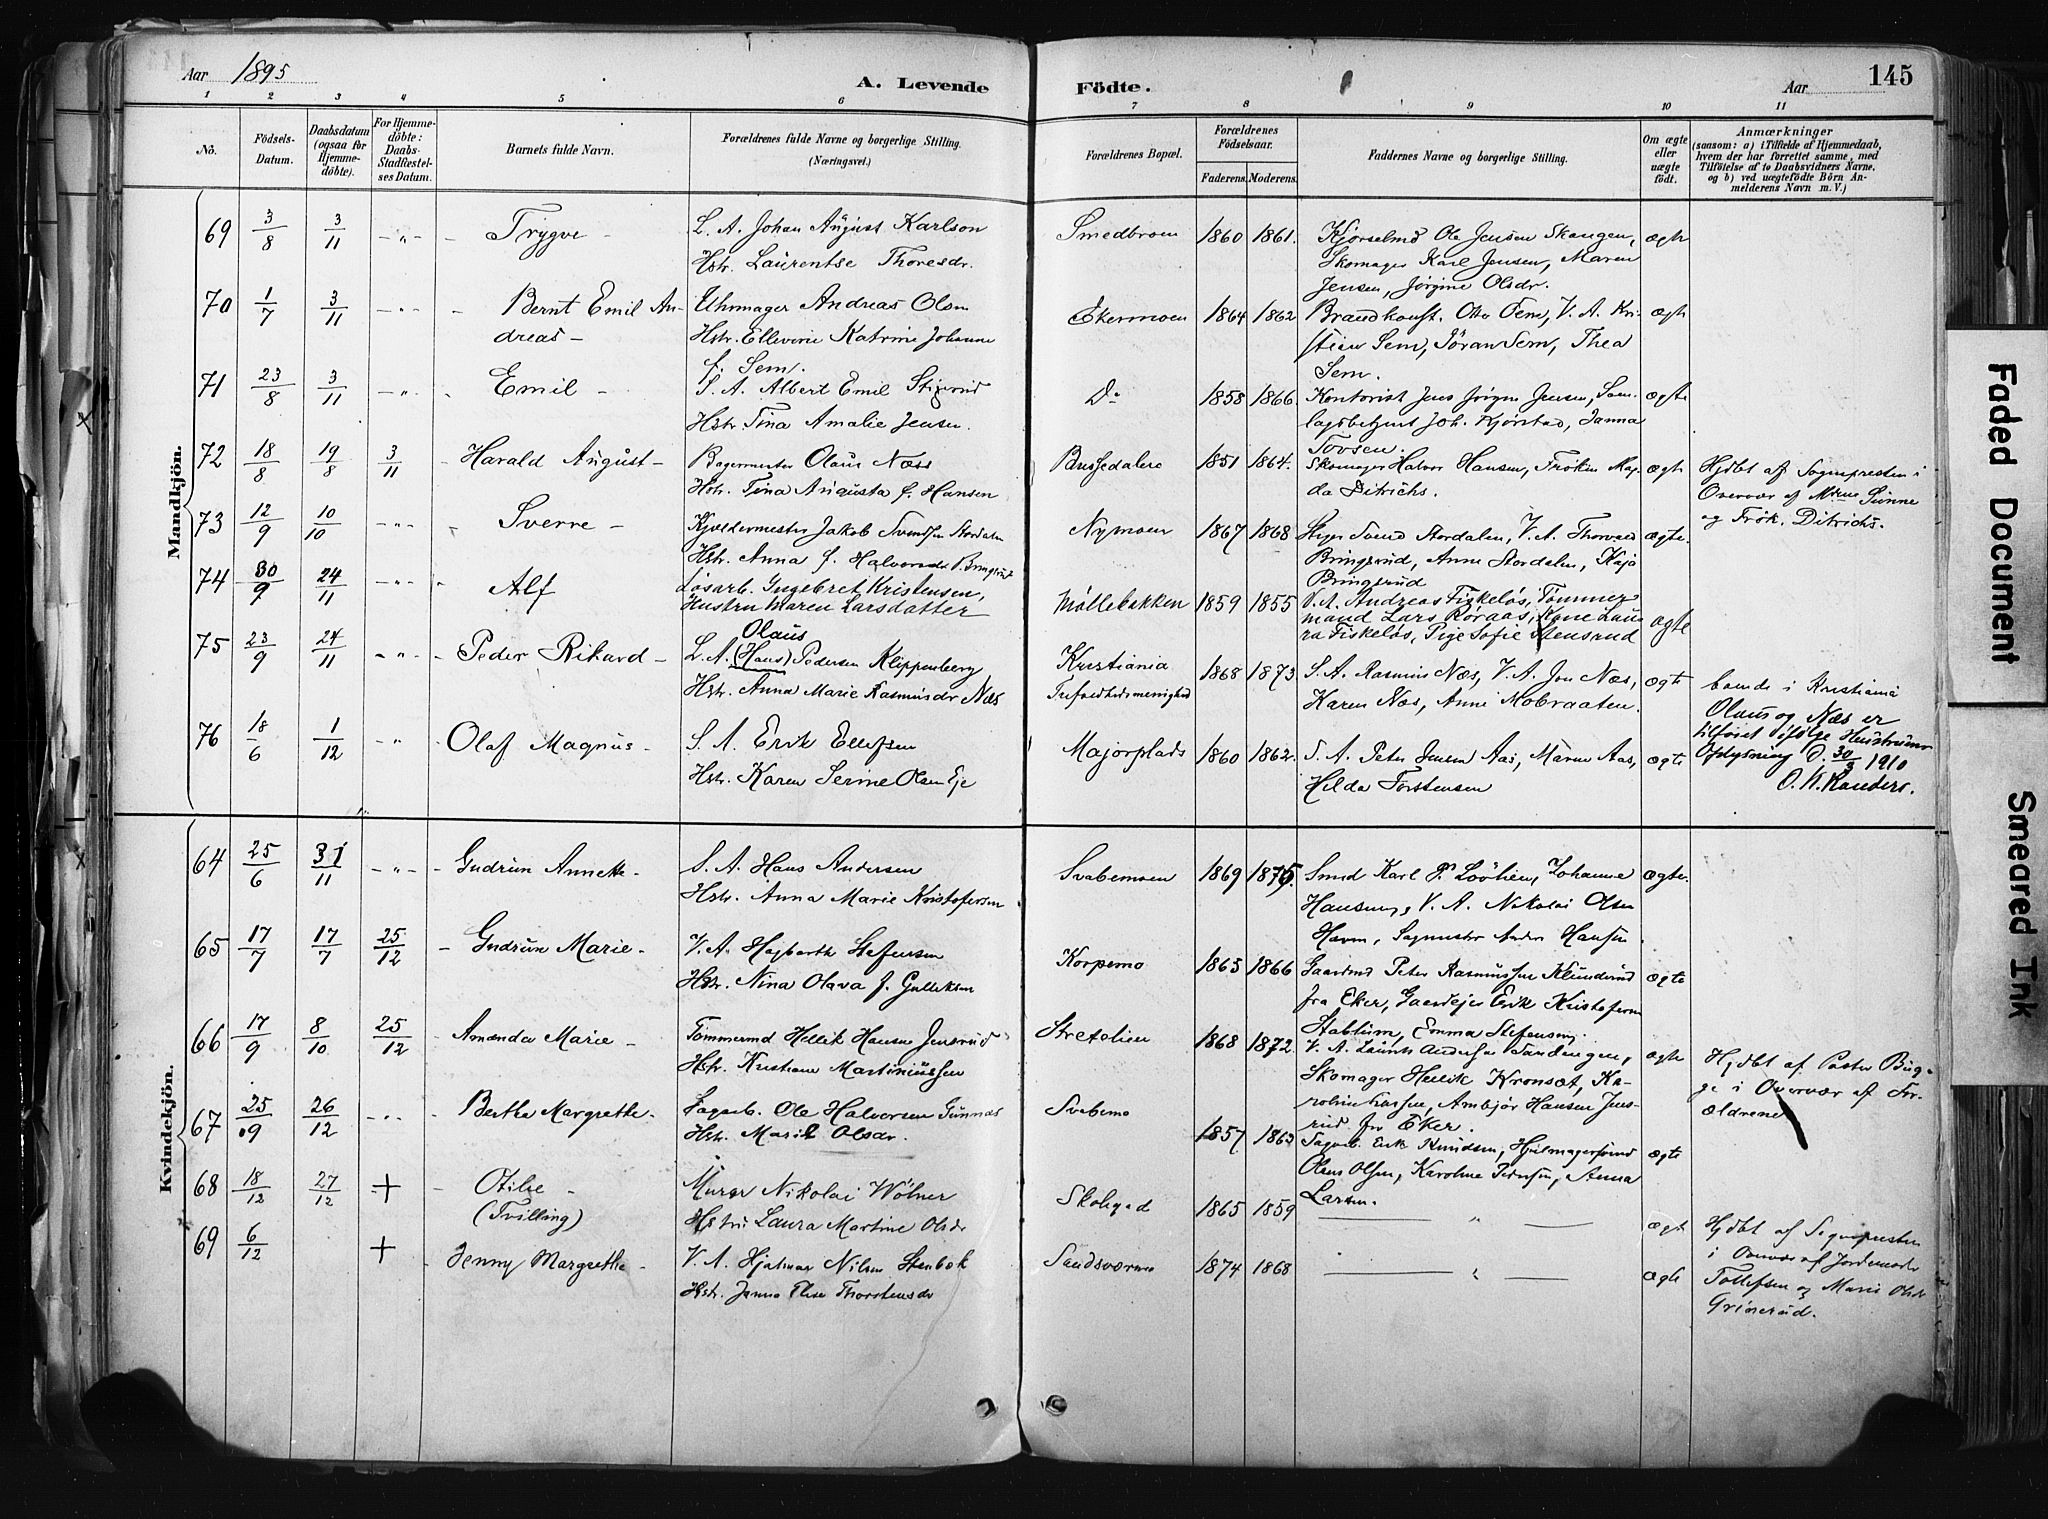 Aar 1895
A. Levende Födte.
Aar
145
1 2 3 4 5 6 7 8 9 10 11
No.
Födsels-Datum.
Daabsdatum (ogsaa for Hjemmedöbte).
For Hjemmedöbte: Daabs-Stadfæstelses Datum.
Barnets fulde Navn.
Forældrenes fulde Navne og borgerlige Stilling.
(Næringsvei.)
Forældrenes Bopæl.
Forældrenes Födselsaar.
Faderens. Moderens.
Faddernes Navne og borgerlige Stilling.
Om ægte eller uægte födt.
Anmærkninger
(saasom: a) i Tilfælde af Hjemmedaab, hvem der har forrettet samme, med Tilföielse af to Daabsvidners Navne, og b) ved uægtefödte Börn Anmelderens Navn m. V.)
Mandkjön.
69 3/8 3/11 - " - Trygve - L. A. Johan August Karlson
Hstr. Laurentse Thoresdr.
Smedbroen 1860 1861. Kjørselmd Ole Jensen Skaugen, ægte
Skomager Karl Jensen, Maren
Jensen, Jørgine Olsdr.
70 1/7 3/11 - " - Bernt Emil Andreas - Uhrmager Andreas Olsen
Hstr. Ellevine Katrine Johanne
f. Sem.
Ekermoen 1864 1862 Brandkonst. Otto Sem, V. A. Kristian Sem, Jöran Sem, Thea
Sem. ægte
71 23/8 3/11 - " - Emil - S. A. Albert Emil
Hstr. Tina Amalie Jensen.
Do 1858 1866. Kontorist Jens Jörgen Jensen, Samlagsbetjent Joh. Kjørstad, Janna
Tovsen. ægte
72 18/8 19/8 3/11 Harald August - Bagermester Olaus Næss
Hstr. Tina Augusta f. Hansen
1851 1864. Skomager Halvor Hansen, Frøken Magda Ditrichs. ægte
Hjdbt af Sognepresten i
Overvær af Mme Sünne
og Frøk. Ditrichs.
73 12/9 10/10 - " - Sverre - Kjeldermester Jakob Svendsen Stordalen
Hstr. Anna f. Halvorsdr Bringsrud
Nymoen 1867 1868 Stiger Svend Stordalen, V. A. Thorvald
Bringsrud, Anne Stordalen, Kaja
Bringsrud ægte.
74 30/9 24/11 - " - Alf Løsarb. Ingebret Kristensen,
Hustru Maren Larsdatter
Møllebakken 1859 1855 V. A. Andreas Fiskeløs, Tømmermand Lars Røraas, Kone Laura Fiskeløs, Pige Sofie Stensrud ægte
75 23/9 24/11 - " - Peder Rikard - L. A. (Hans) Olaus Pedersen Klippenberg
Hstr. Anna Marie Rasmusdr Næs
Kristiania
Trefoldhedsmenighed
1868 1873 S. A. Rasmus Næs, V. A. Jon Næs,
Karen Næs, Anne Mobraaten. ægte
boende i Kristiania
Olaus og Næs er
tilføiet ifølge Hustruens
Opdysning d. 30/3 1910
O. W. Randers.
76 18/6 1/12 " - Olaf Magnus - S. A. Erik Ellefsen
Hstr. Karen Serine Olsen Eje
Majorplads 1860 1862. S. A. Peter Jensen Aas, Maren Aas,
Hilda Torstensen ægte
Kvindekjön.
64 25/6 31/11 - " - Gudrun Annette - S. A. Hans Andersen
Hstr. Anna Marie Kristofersen
Svabemoen 1869 1875. Smed Karl P. Løvlien, Johanne
Hansen, V. A. Nikolai Olsen
Havn, Sagmester Anders Hansen ægte.
65 17/7 17/7 25/12 - Gudrun Marie - V. A. Hagbarth Stefensen
Hstr. Nina Olava f. Gulliksen
Korpemo 1865 1866 Gaardmd Peter Rasmussen Klunderud
fra Eker, Gaardejer Erik Kristofersen
Stablum, Emma Stefensen. ægte
66 17/9 8/10 25/12 Amanda Marie - Tømmermd Hellik Hansen Jensrud
Hstr. Kristiane Martiniussen
Stretelien 1868 1872. V. A. Laurits Andersen Tandengen,
Skomager Hellik Kronsæt, Karoline Hansen, Ambjør Hansen Jensrud fra Eker. ægte
Hjdbt af Pastor Bugge i Overvær af Forældrene
67 25/09 26/12 - " - Bertha Margrethe - Sagarb. Ole Halvorsen Gunnæs
Hstr. Marie Olsdr.
Svabemo 1857 1863 Sagarb. Erik Knudsen, Hjulmagersvend
Olaus Olsen, Karoline Pedersen, Anna
Larsen. ægte
68 18/12 27/12 + - Otilie -
(Tvilling)
Murer Nikolai Wölner
Hstru Laura Martine Olsdr
Skolegad 1865 1859 — " — ægte
Hjdbt af Sognepresten
i Overvær af Jordemoder
Tollefsen og Marie Olsdr
Grinerud.
69 6/12 + - Jenny Margrethe - V. A. Hjalmar Nilsen Stenbæk
Hstr. Janna Elise Thorstensdr
Sandsværmo 1874 1868 — " — ægte
Faded Document
Smeared Ink